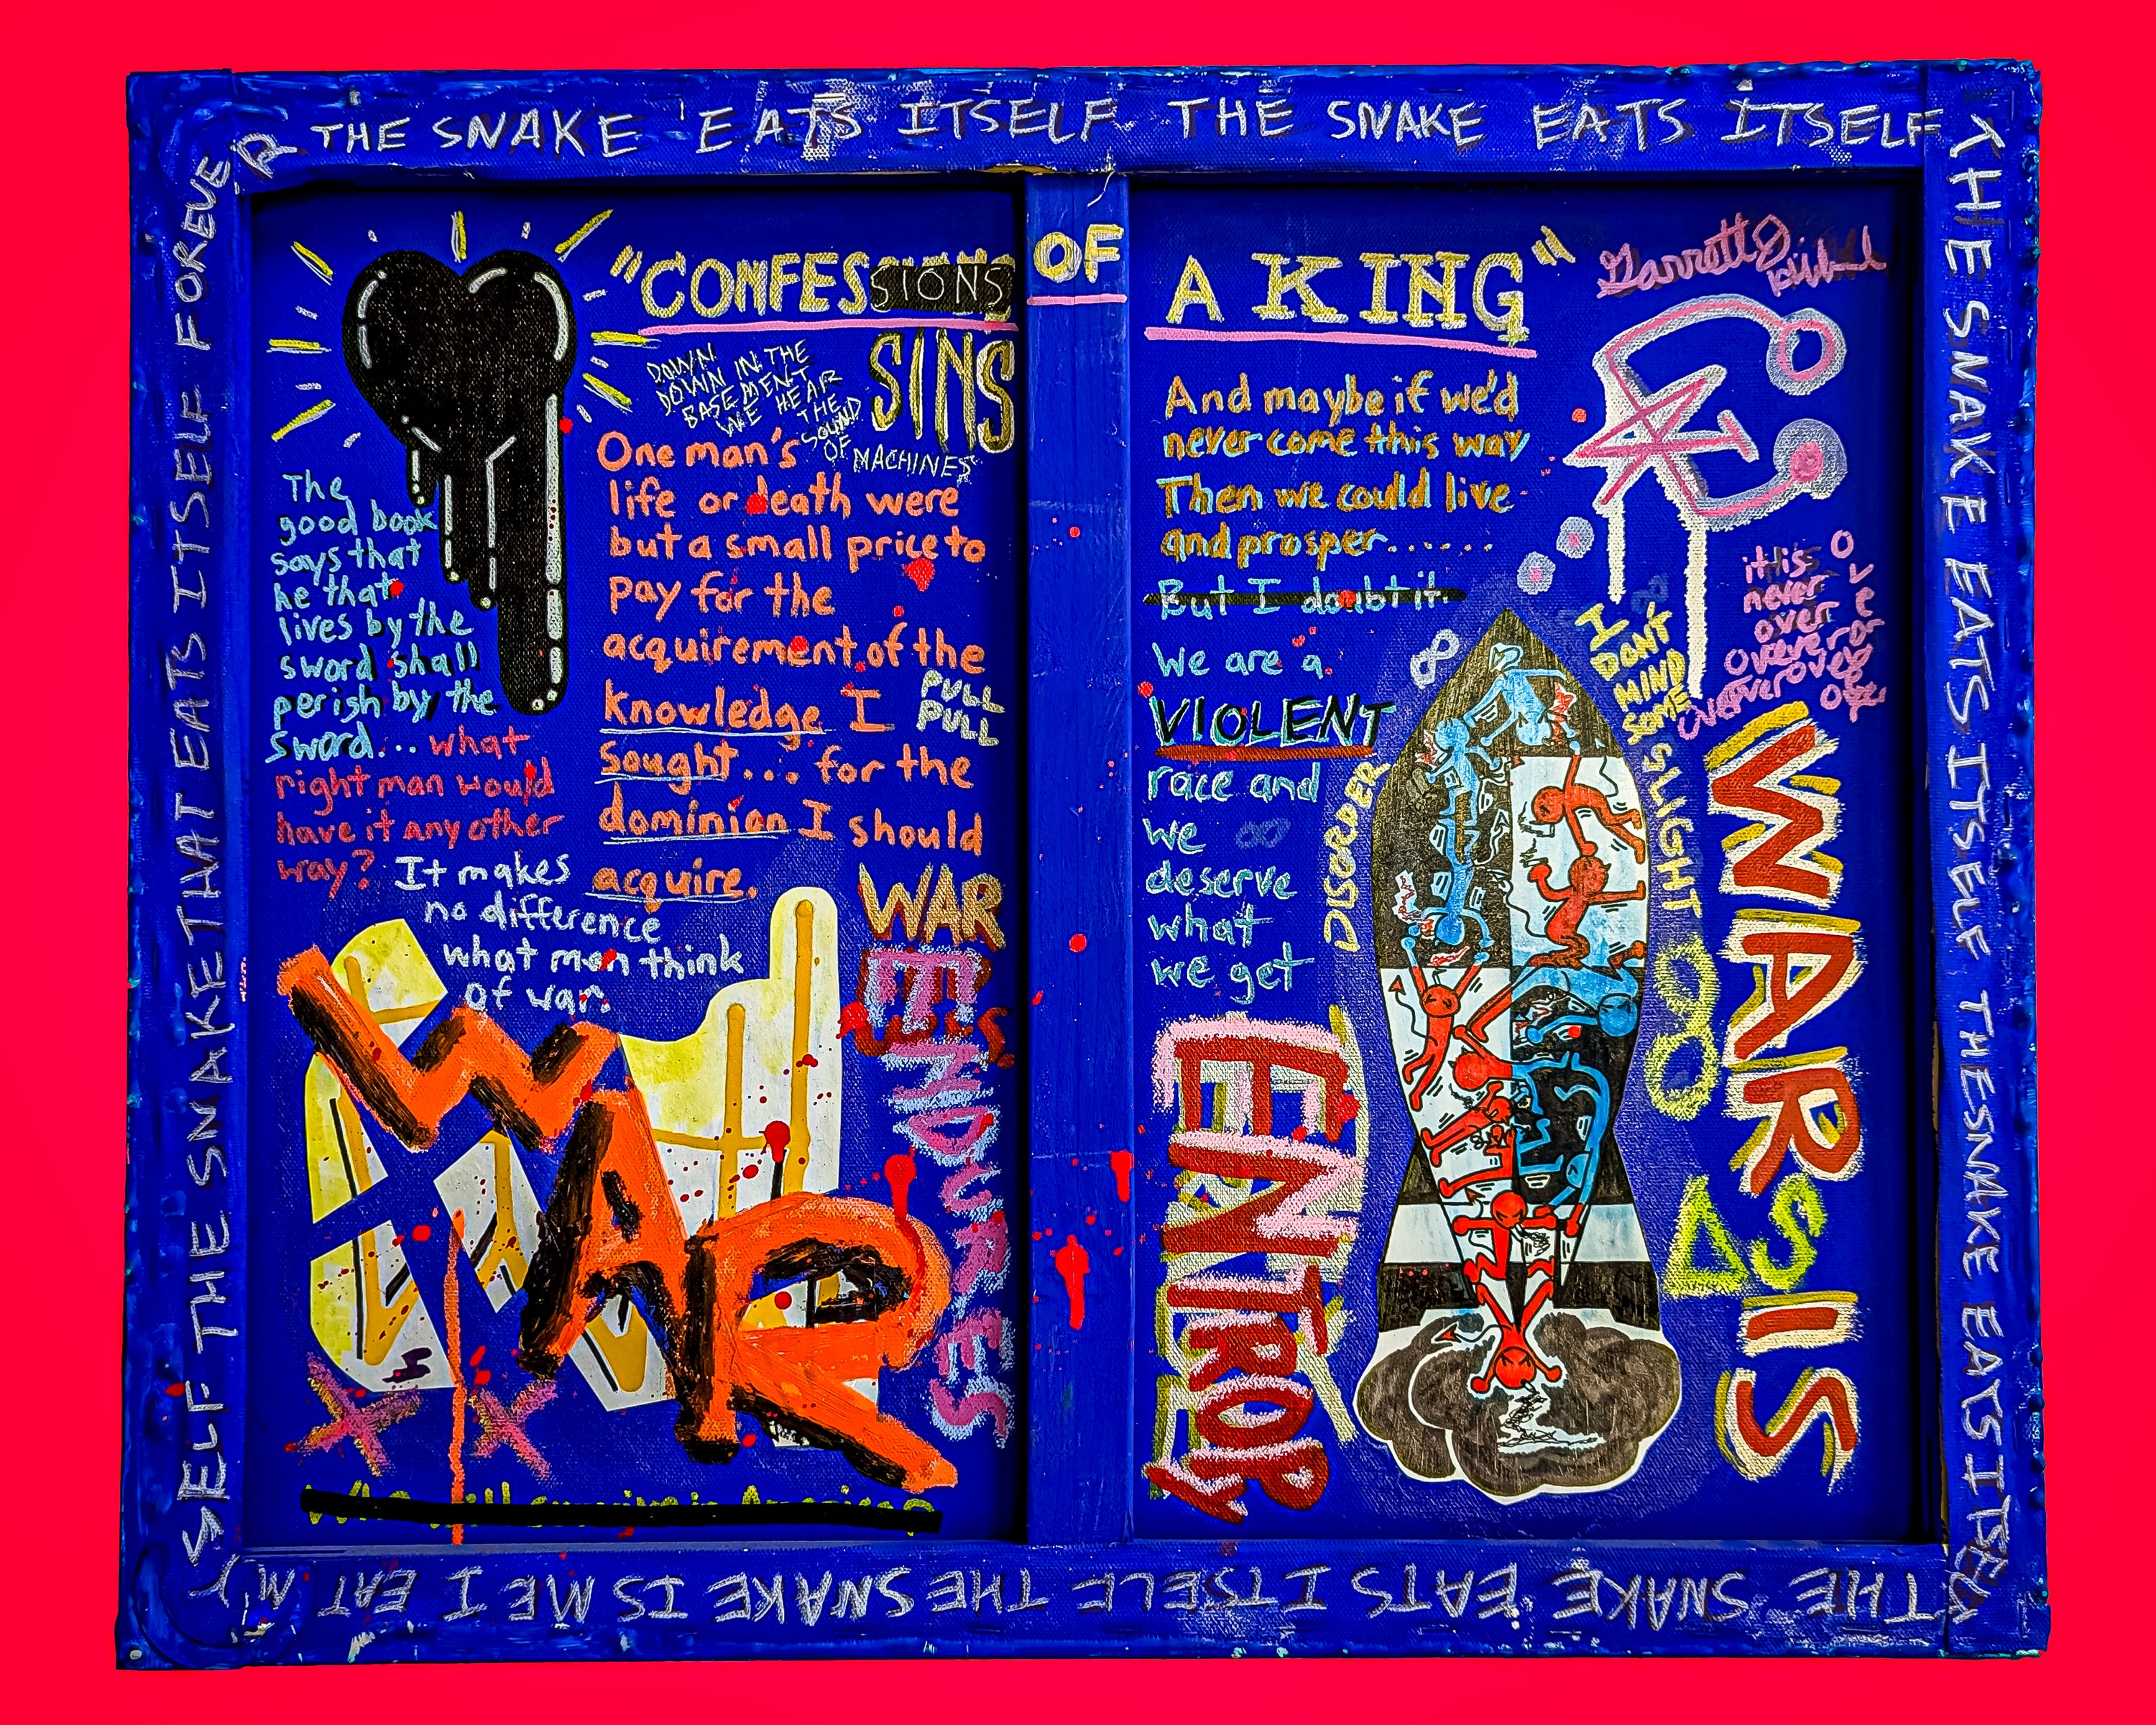 THE SNAKE EATS ITSELF THE SNAKE EATS ITSELF
THE SNAKE EATS ITSELF THE SNAKE EATS ITSELF
THE SNAKE EATS ITSELF THE SNAKE IS ME I EAT MY
SELF THE SNAKE THAT EATS ITSELF FOREVER
"CONFESSIONS
SINS
OF
A KING"
Garrett
DOWN
DOWN IN THE
BASEMENT
WE HEAR
THE
SOUND
OF
MACHINES
The
good book
says that
he that
lives by the
sword shall
perish by the
sword... what
right man would
have it any other
way? It makes
no difference
what men think
of war.
One man's
life or death were
but a small price to
pay for the
acquirement of the
knowledge I
sought... for the
dominian I should
acquire.
PULL
PULL
WAR
ENDURES
WAR
And maybe if we'd
never come this way
Then we could live
and prosper......
But I doubt it.
We are a
VIOLENT
race and
we
deserve
what
we get
DISORDER
I
DON'T
MIND
SOME
SLIGHT
it is
never
over
ENTROPY
WAR IS